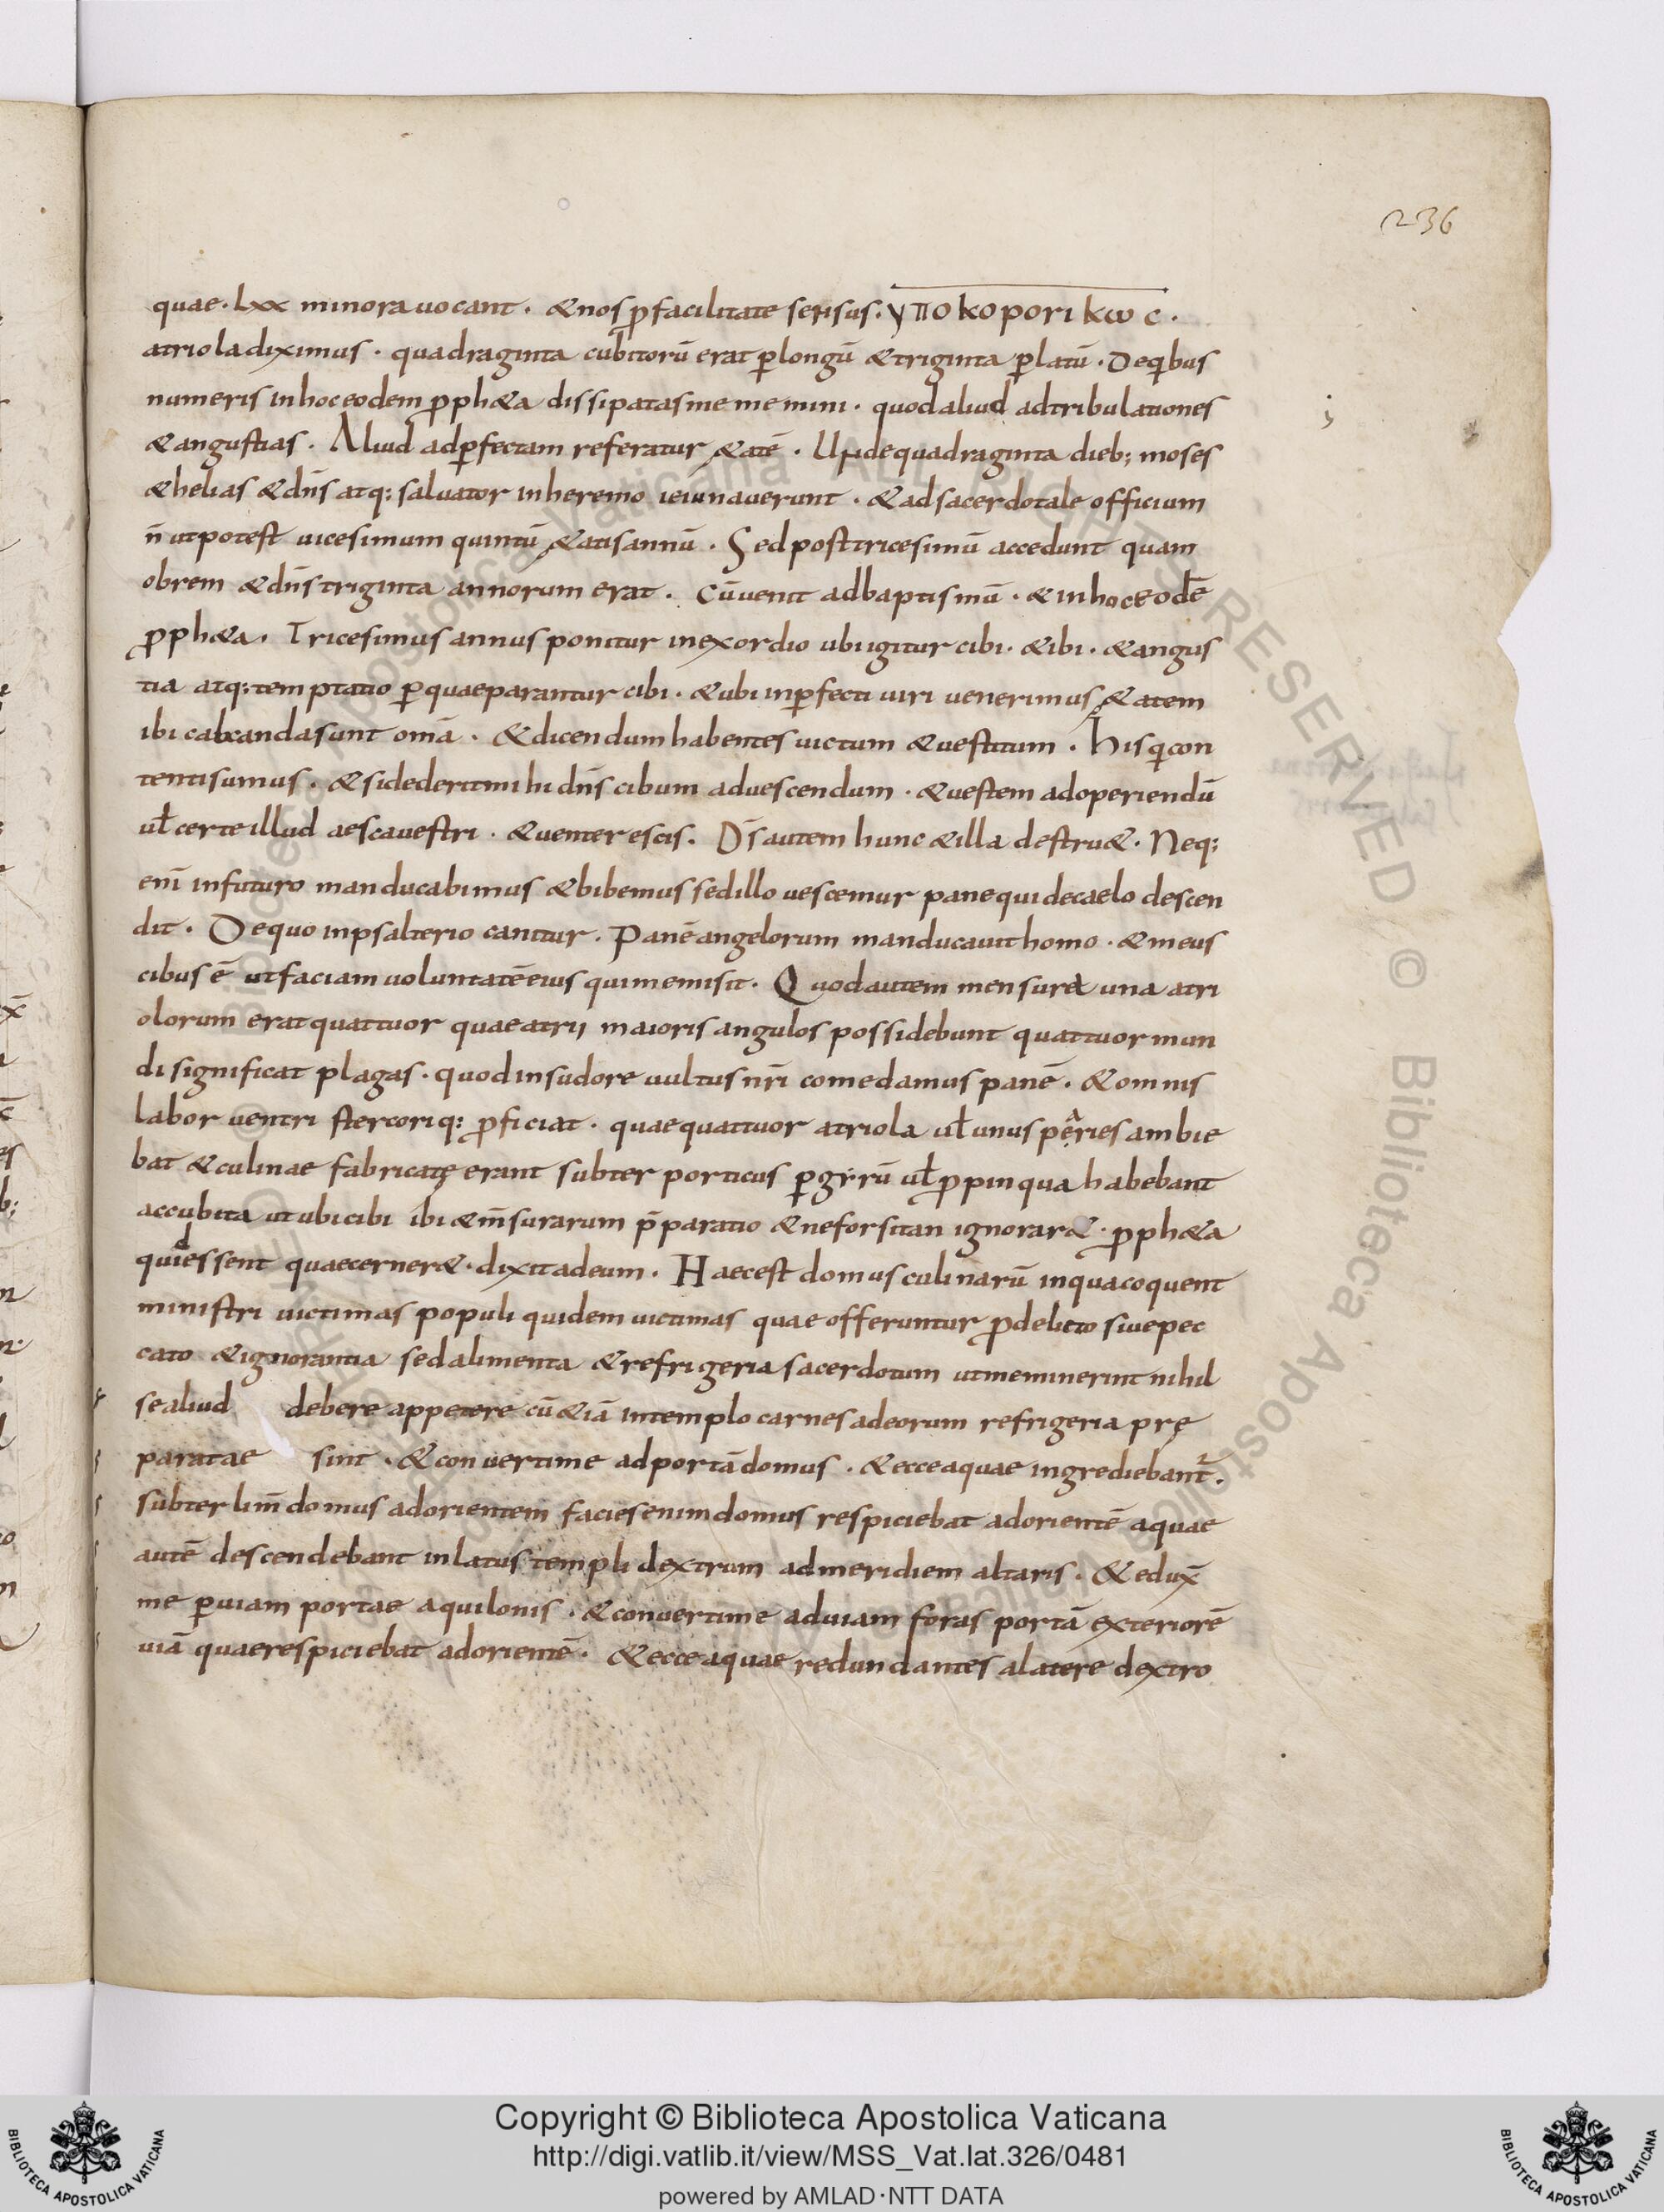 236
quae · lxx minora uocant · & nos ꝓ facilitate sensus · γποκοροrικωc ·
atriola diximus · quadraginta cubitorū erat ꝑ longū & triginta ꝑ latū · De qͥbus
numeris in hoc eodem ꝓph&a dissipatas me memini · quod aliud ad tribulationes
& angustias · Aliud ad ꝑfectam referatur &atē · Unde quadraginta dieb; moses
& helias & dn̄s atq; saluator in heremo ieiunauerunt · & ad sacerdotale officium
n̄ ut potest uicesimum quintū &atis annū · Sed post tricesimū accedunt quam
obrem & dn̄s triginta annorum erat · cū uenit ad baptismū · & in hoc eodē
ꝓph&a · Tricesimus annus ponitur in exordio ubi igitur cibi · & ibi · & angus
tia atq; temptatio ꝑ quae parantur cibi · & ubi in ꝑfecti uiri uenerimus &atem
ibi calcanda sunt omā · & dicendum habentes uictum & uestitum · His qͥ con
tenti sumus · & si dederit mihi dn̄s cibum ad uescendum · & uestem ad operiendū
uł certe illud aesca uestri · & uenter escis · Ds̄ autem hunc & illa destru& · Neq;
enī in futuro manducabimus & bibemus sed illo uescemur pane qui de caelo descen
dit · De quo in psalterio canitur · Panē angelorum manducauit homo · & meus
cibus ē ut faciam uoluntatē eius qui me misit · Quod autem mensura una atri
olorum erat quattuor quae atrii maioris angulos possidebunt quattuor mun
di significat plagas · quod in sudore uultus nr̄i comedamus panē · & omnis
labor uentri stercoriq; ꝓficiat · quae quattuor atriola uł unus pęries ambie
bat & culinae fabricatę erant subter porticus ꝑ gyrū uł ꝓpinqua habebant
accubita ut ubi cibi ibi & m̄surarum p̄paratio & ne forsitan ignorar& · ꝓph&a
quid essent quae cerner& · dixit ad eum · Haec est domus culinarū in qua coquent
ministri uictimas populi quidem uictimas quae offeruntur ꝓ delicto siue pec
cato & ignorantia sed alimenta & refrigeria sacerdotum ut meminerint nihil
se aliud debere appetere cū &iā in templo carnes ad eorum refrigeria prę
paratae sint · & conuertit me ad portā domus · & ecce aquae ingrediebant᷑ ·
subter lim̄ domus ad orientem facies enim domus respiciebat ad orientē aquae
autē descendebant in latus templi dextrum ad meridiem altaris · & edux̄
me ꝑ uiam portae aquilonis · & conuertit me ad uiam foras portā exteriorē
uiā quae respiciebat ad orientē · & ecce aquae redundantes a latere dextro
Copyright © Biblioteca Apostolica Vaticana
http://digi.vatlib.it/view/MSS_Vat.lat.326/0481
powered by AMLAD·NTT DATA